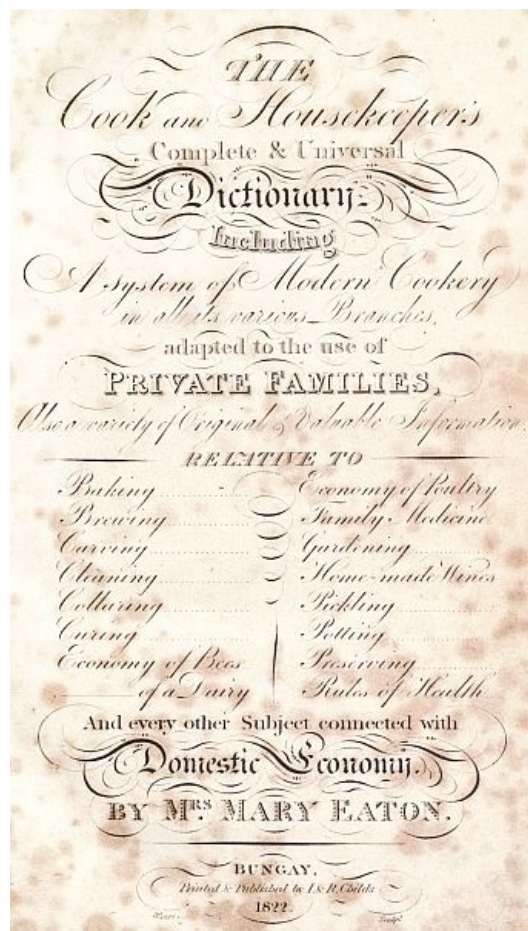 THE
Cook and Housekeeper's
Complete & Universal
Dictionary.
Including
A system of Modern Cookery
in all its various Branches,
adapted to the use of
PRIVATE FAMILIES,
Also a variety of Original & Valuable Information.
RELATIVE TO
Baking
Brewing
Carving
Cleaning
Collaring
Curing
Economy of Bees
of a Dairy
Economy of Poultry
Family Medicine
Gardening
Home-made Wines
Pickling
Potting
Preserving
Rules of Health
And every other Subject connected with
Domestic Economy.
BY MRS. MARY EATON.
BUNGAY,
Printed & Published by J. & R. Childs
1822.
Sculpt